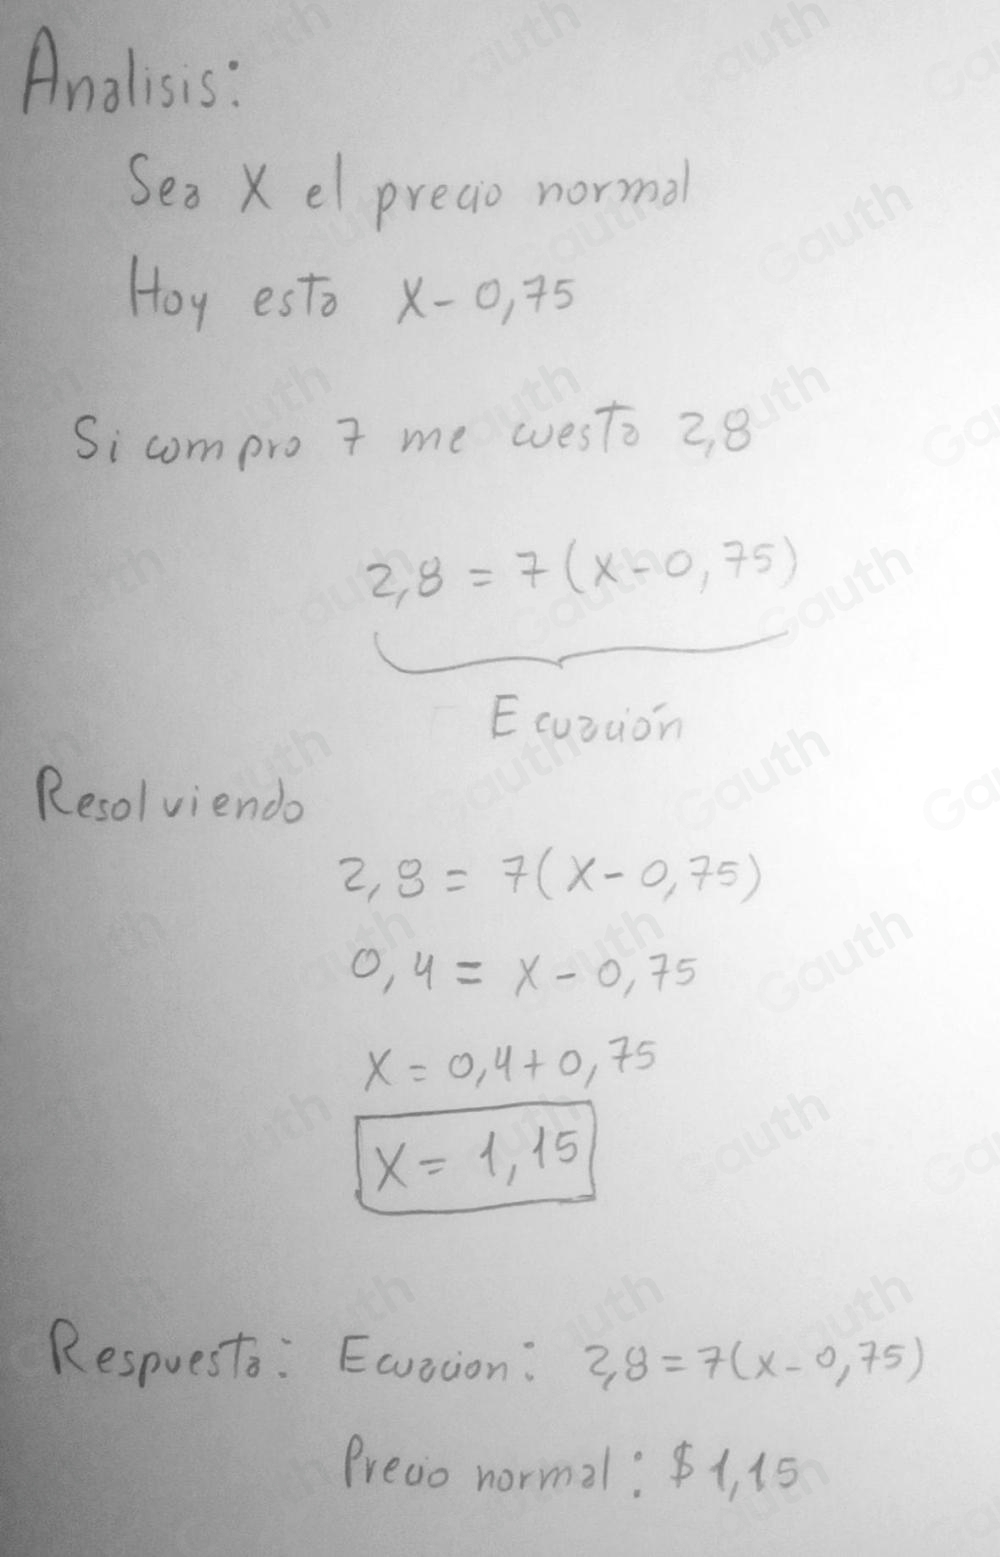 Analisis:
Sea X el precio normal
Hoy esta x - 0,75
Si compro 7 me cuesta 2,8
2,8 = 7(x - 0,75)
Ecuación
Resolviendo
2,8 = 7(x - 0,75)
0,4 = x - 0,75
x = 0,4 + 0,75
x = 1,15
Respuesta: Ecuacion: 2,8 = 7(x - 0,75)
Precio normal: $1,15